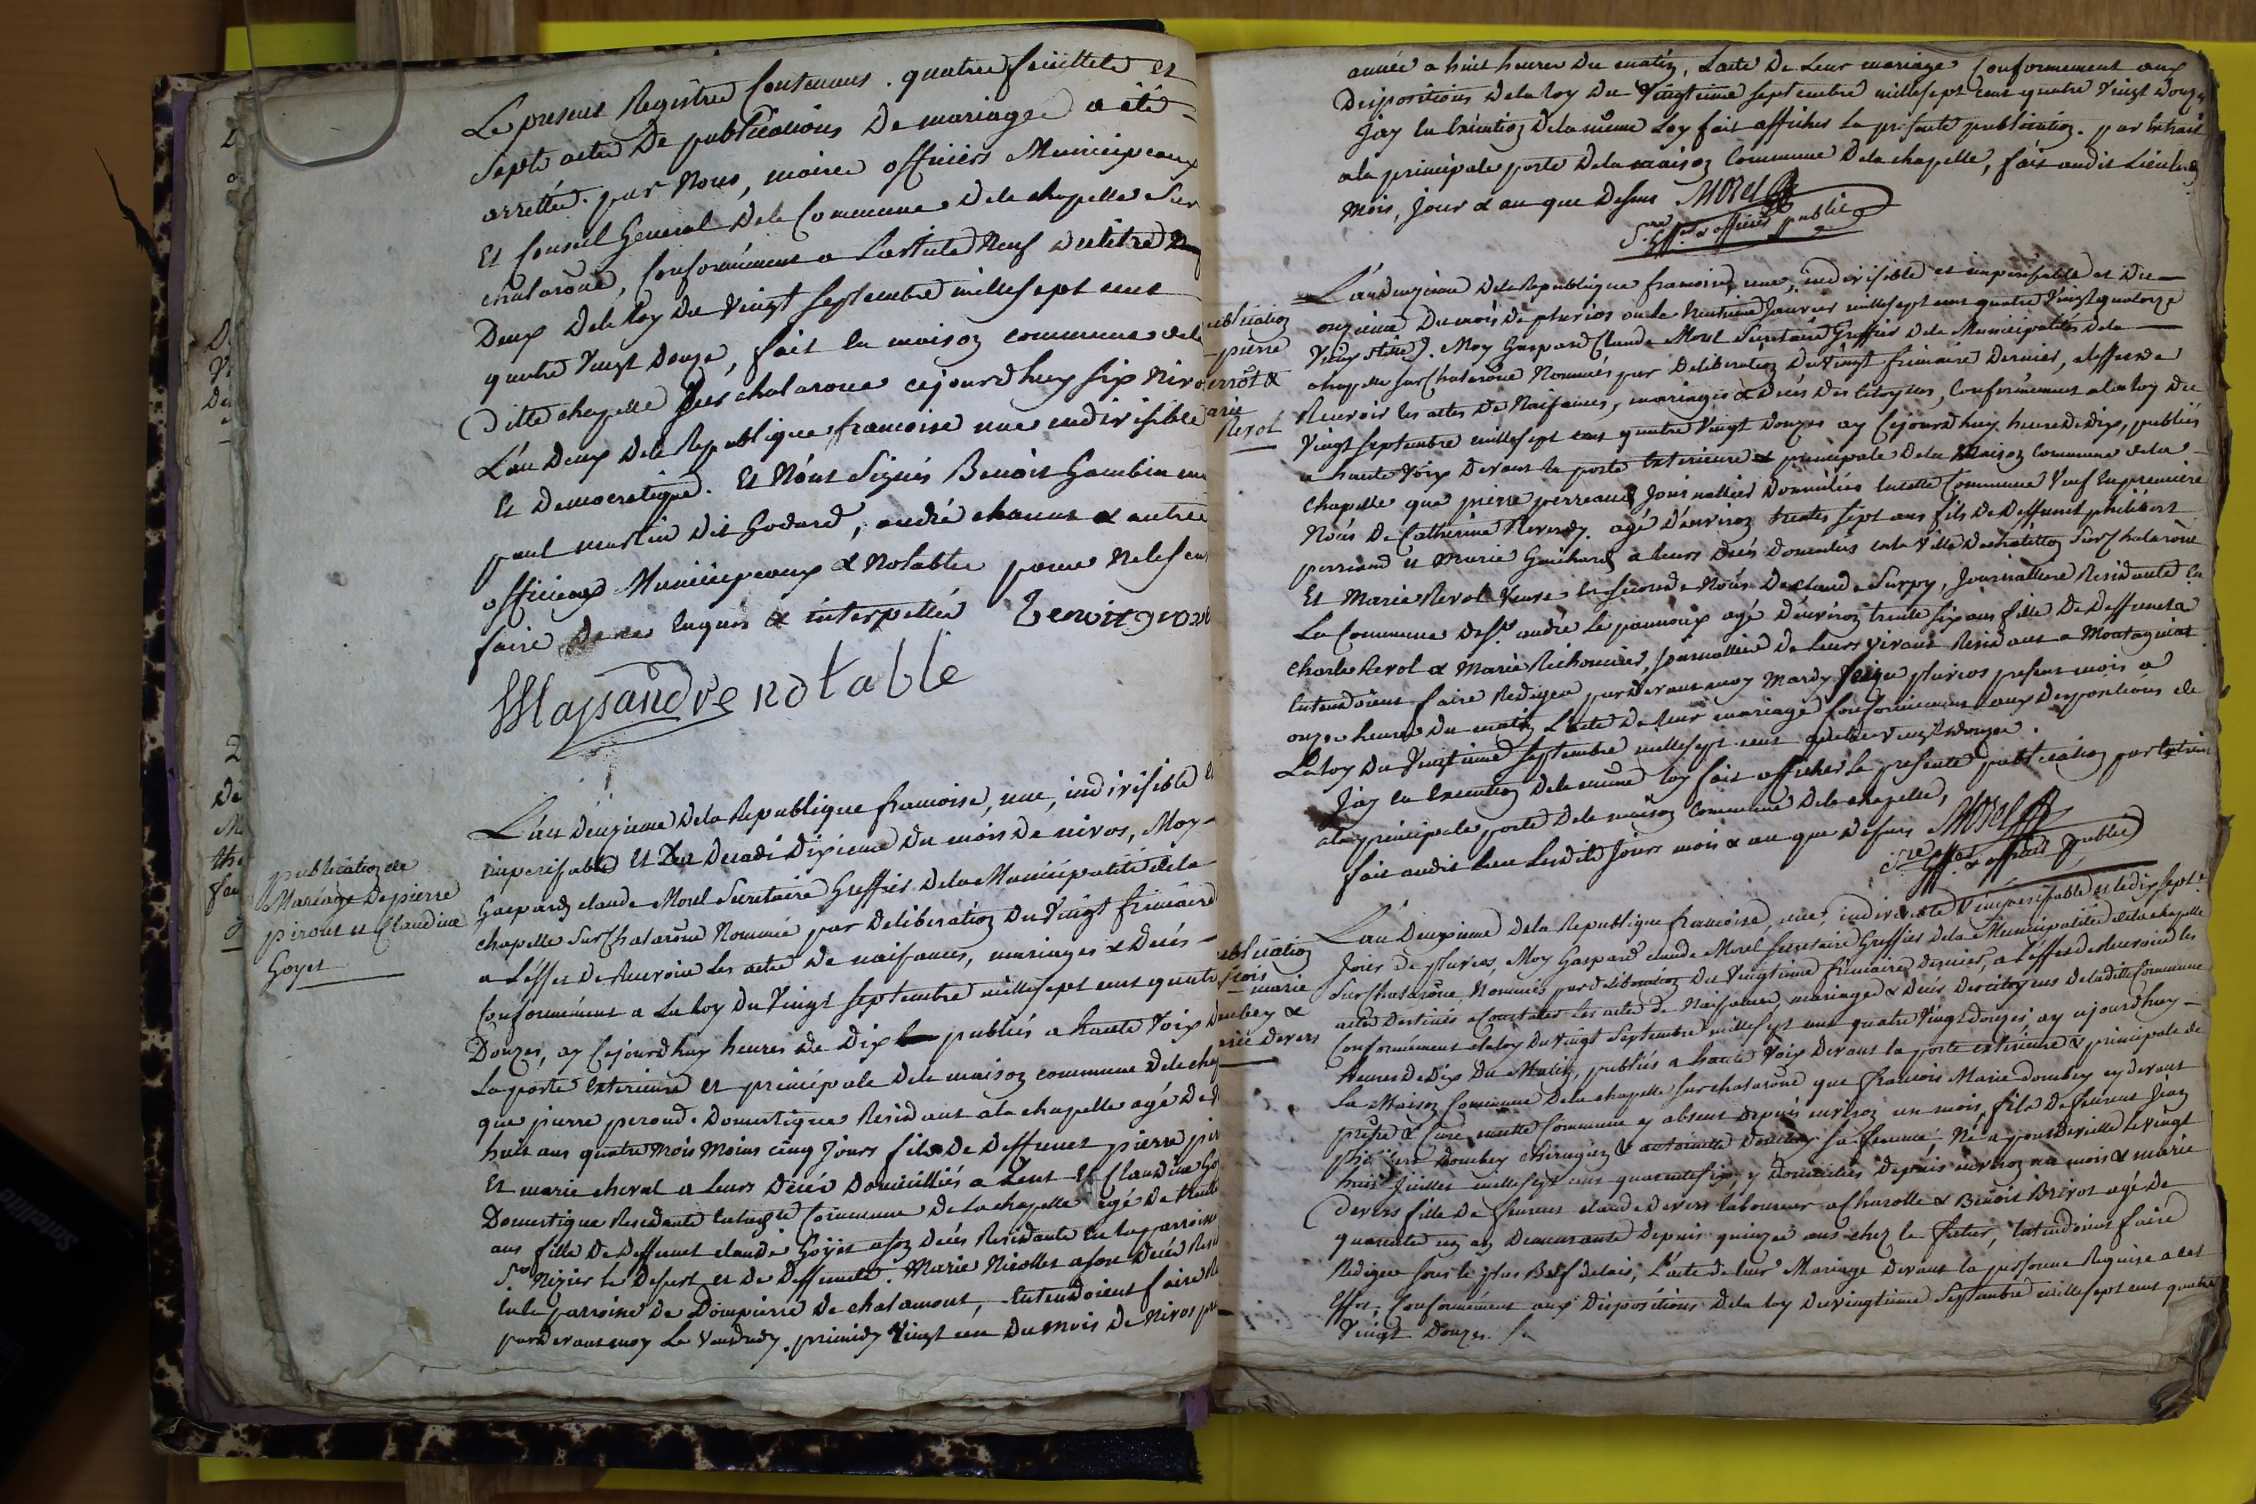 Le present Registre Contenant quatre feuillets et
sept actes De publications De mariage a été
arretté par Nous, maire officiers Municipeaux
Et Conseil General Dela Commune Dela chapelle Sur
chalarône, Conformément a Larticle Neuf du titre
Deux Dela Loy du Vingt Septembre millesept cent
quatre Vingt Douze, fait en maison commune dela
Ditte chapelle sur chalarone cejourdhuy six Nivo
L'an Deux Dela Republique francoise une indivisible
Et Democratique. Et N'ont Signés Benoit Gambin
paul martin dit Godard, andré chanut & autres
officiers Municipeaux & Notables pour ne le
faire De ce Enquis & interpellés Benoit
Massandre notable
publication de
Mariage De pierre
piroud et Claudine
Goyet
L'an deuxieme Dela Republique francoise, une, indivisible
imperissable Et Du Decadi Dixieme Du mois De nivos, Moy
Gaspard claude Morel Secretaire Greffier Dela Municipalité dela
chapelle Sur Chalarône Nommé par Deliberation Du Vingt frimaire
a L'effet De Recevoir Les actes De naissances, mariages & Decés
Conformément a La Loy Du Vingt Septembre millesept cent quatre
Douzes, ay Cejourdhuy heures De Dix publiés a haute Voix
La porte Exterieure et principale Dela maison commune Dela
que pierre peroud Domestique Residant a la chapelle agé De
huit ans quatre mois moins cinq Jours fils De Deffunct pierre
Et marie cheval a Leurs Décés Domicilliés a Lent Et Claudine
Domestique Residante Commune De La chapelle agé De trente
ans fille De Deffunct claude Goyet a son Decés Residante En la parroisse
St Nizier le Desert et De Deffuncte Marie Nicollet a son Decés
En la parroisse de Dompierre De chalamont, Entendoient faire
pardevant moy Le Vendredy primidy Vingt un Du mois De nivos
année a huit heures Du matin, L'acte De Leur mariage Conformement aux
Dispositions Dela Loy Du Vingtieme septembre millesept cent quatre Vingt Douze
J'ay En Execution Dela même Loy fait afficher La presente publication par Extrait
ala principale porte Dela maison Commune Dela chapelle, fait audit Lieu
Mois, Jour & an que Dessus Morel
Sre Gffer & officier public
publication
pierre
perrôt &
marie
Revol
L'an deuxieme Dela Republique francoise, une, indivisible et imperissable et Du
onzieme Du mois De pluvios ou le trentieme Janvier millesept cent quatre Vingt quatorze
Vieux stile. Moy Gaspard Claude Morel Secretaire Greffier Dela Municipalité Dela
chapelle sur Chalarône Nommés par Deliberation Du Vingt frimaire Dernier, a l'effet de
Recevoir les actes De Naissances, mariages & Decés Des Citoyens, Conformément a la loy Du
Vingt Septembre millesept cent quatre Vingt Douzes ay Cejourdhuy heure De dix, publiés
a haute Voix Devant la porte Exterieure & principale Dela Maison Commune dela
Chapelle que pierre perreaud Journallier Domiciliés en cette Commune Veuf En premiere
Nôces De Catherine Reverdy agé D'environ trente sept ans fils De Deffunct philibert
perriaud et Marie Guichard a leurs Decés Domiciliés en la Ville De chatillon Sur Chalarône
Et Marie Revol Veuve En seconde Nôces De claude Surpy, Journalliere Residante En
La Commune De St andré Le pannoux agé d'environ trente six ans fille De Deffuncts
Charle Revol & Marie Richonnier, Journallier De Leurs Vivant Residant a Montagniat
Entendoient faire Rediger pardevant moy Mardy Seize pluvios present mois a
onze heures Du matin L'acte De leur mariage Conformément aux Dispositions de
La loy Du Vingtieme Septembre millesept cent quatre vingt douze.
J'ay En Execution Dela même loy fait afficher La presente publication par Extrait
ala principale porte Dela maison Commune Dela chapelle,
fait audit Lieu Lesdits Jours mois & an que Dessus Morel
Sre Gffer & officier public
publication
francois marie
Dombey &
marie Devers
L'an Deuxieme Dela Republique francoise, une, indivisible & imperissable et le dix sept
Jour De pluvios, Moy Gaspard claude Morel Secretaire Greffier Dela Municipalité dela chapelle
Sur Chalarône Nommés par deliberation Du Vingtieme frimaire dernier, a L'effet de Recevoir les
actes Destinés a Constater Les actes de Naissances mariages & Decés Des citoyens De ladite Commune
Conformément ala loy Du vingt Septembre millesept cent quatre Vingt Douzes ay cejourdhuy
heures De Dix Du Matin, publiés a haute Voix Devant la porte exterieure & principale de
La Maison Commune Dela chapelle sur chalarône que francois Marie dombey cy devant
prêtre & Curé cette Commune y absent Depuis environ un mois, fils De feu Jean
Dombey chirurgien & antoinette sa femme Né a pont Deveille Le vingt
huit Juillet millesept cent quarante six, y Domiciliés Depuis environ un mois & marie
Devers fille De claude Devers laboureur a Charolle & Benoit Brivot agé De
quarante un an Demeurante Depuis quinze ans chez le futur, Entendoient faire
Rediger sous le plus Bref Delais, L'acte de leur Mariage Devant la personne Requise a cet
Effet, Conformement aux Dispositions Dela Loy Du vingtieme Septembre millesept cent quatre
Vingt Douzes.